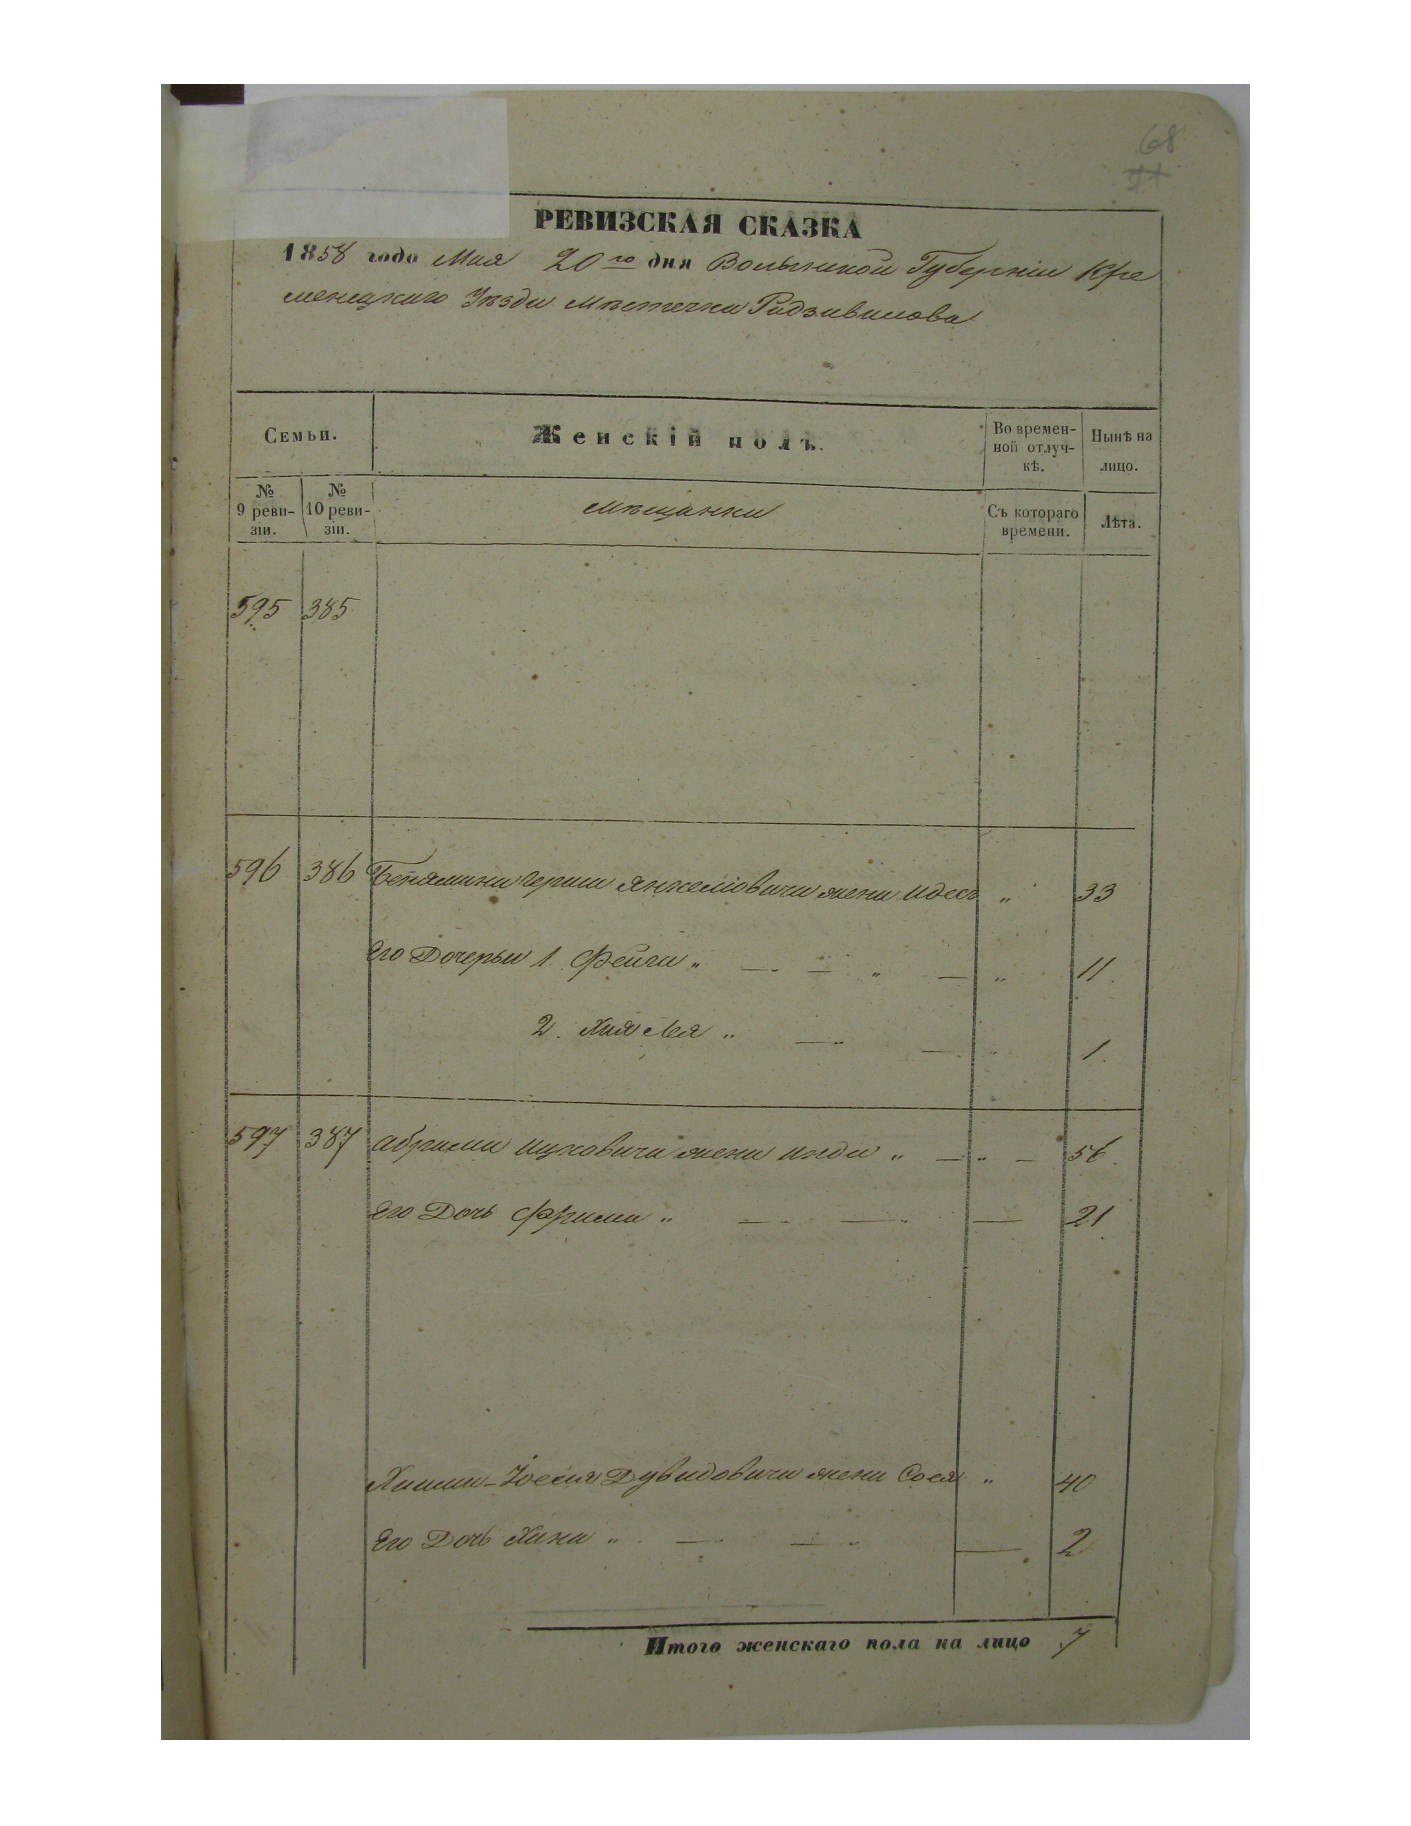 68
РЕВИЗСКАЯ СКАЗКА
1858 года Мая 20го дня Волынской Губерніи Кре
менецкаго Уѣзда Мѣстечка Радзивилова
Семьи.
Женскій полъ.
Во времен-
ной отлуч-
кѣ.
Нынѣ на
лицо.
№
9 реви-
зіи.
№
10 реви-
зіи.
Мѣщанки
Съ котораго
времени.
Лѣта.
595 385
596 386 Бенямина Герша Янкеліовича жена Идесъ " 33
Его Дочерьи 1 Фейга " — — " — " 11
2. Хая Лея " — — " 1.
597 387 Абрама Ицковича жена " — " — 56.
Его Дочь Фрима " — — — 21
Хаима-Іосея Дувидовича жена Сося " 40
Его Дочь Хана " — — " — 2
Итого женскаго пола на лицо 7